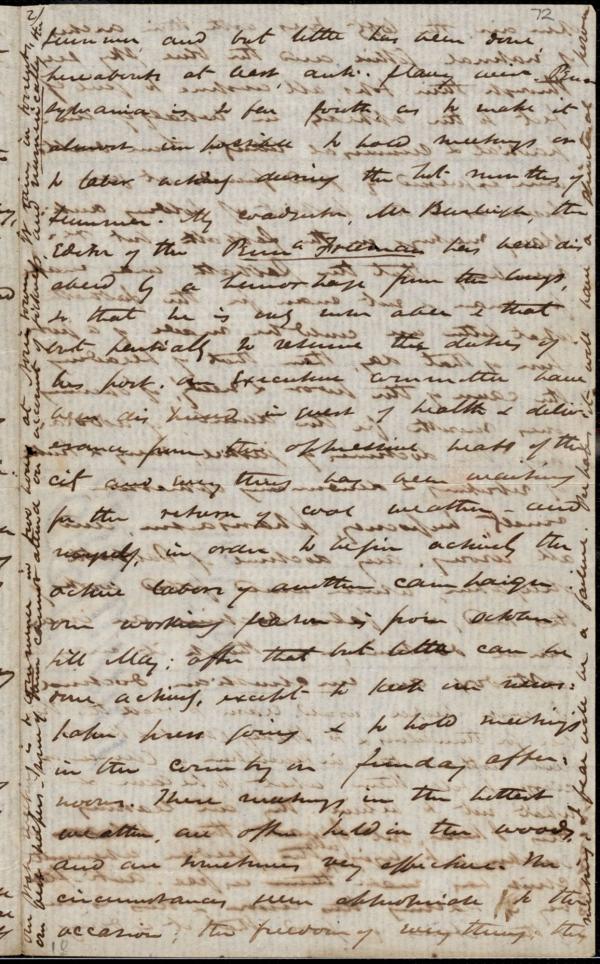 2/
72
summer, and but little has been done,
hereabouts at least, anti-slavery wise. Penn
sylvania is so far south as to make it
almost impossible to hold meetings or
to labor actively during the hot months of
summer. My coadjutor, Mr Burleigh, the
Editor of the Penna Freeman has been dis
abled by a hemorrhage from the lungs,
so that he is only now able & that
but partially to resume the duties of
his post. Executive committee have
been dispersed in quest of health & deliv
erance from the oppressive heats of the
city and every thing has been waiting
for the return of cool weather - and
in order to begin actively the
active labors of another campaign
our working season is from October
till May: after that but little can be
done actively, except to keep our news-
paper press going & to hold meetings
in the country on Sunday after-
noons. These meetings, in the hottest
weather, are often held in the woods,
and are sometimes very effective. The
circumstances seem appropriate to the
occasion; the freedom of every thing; the
10
on account of sickness and numerically, the
meeting, I fear will be a failure. Perhaps it will have a